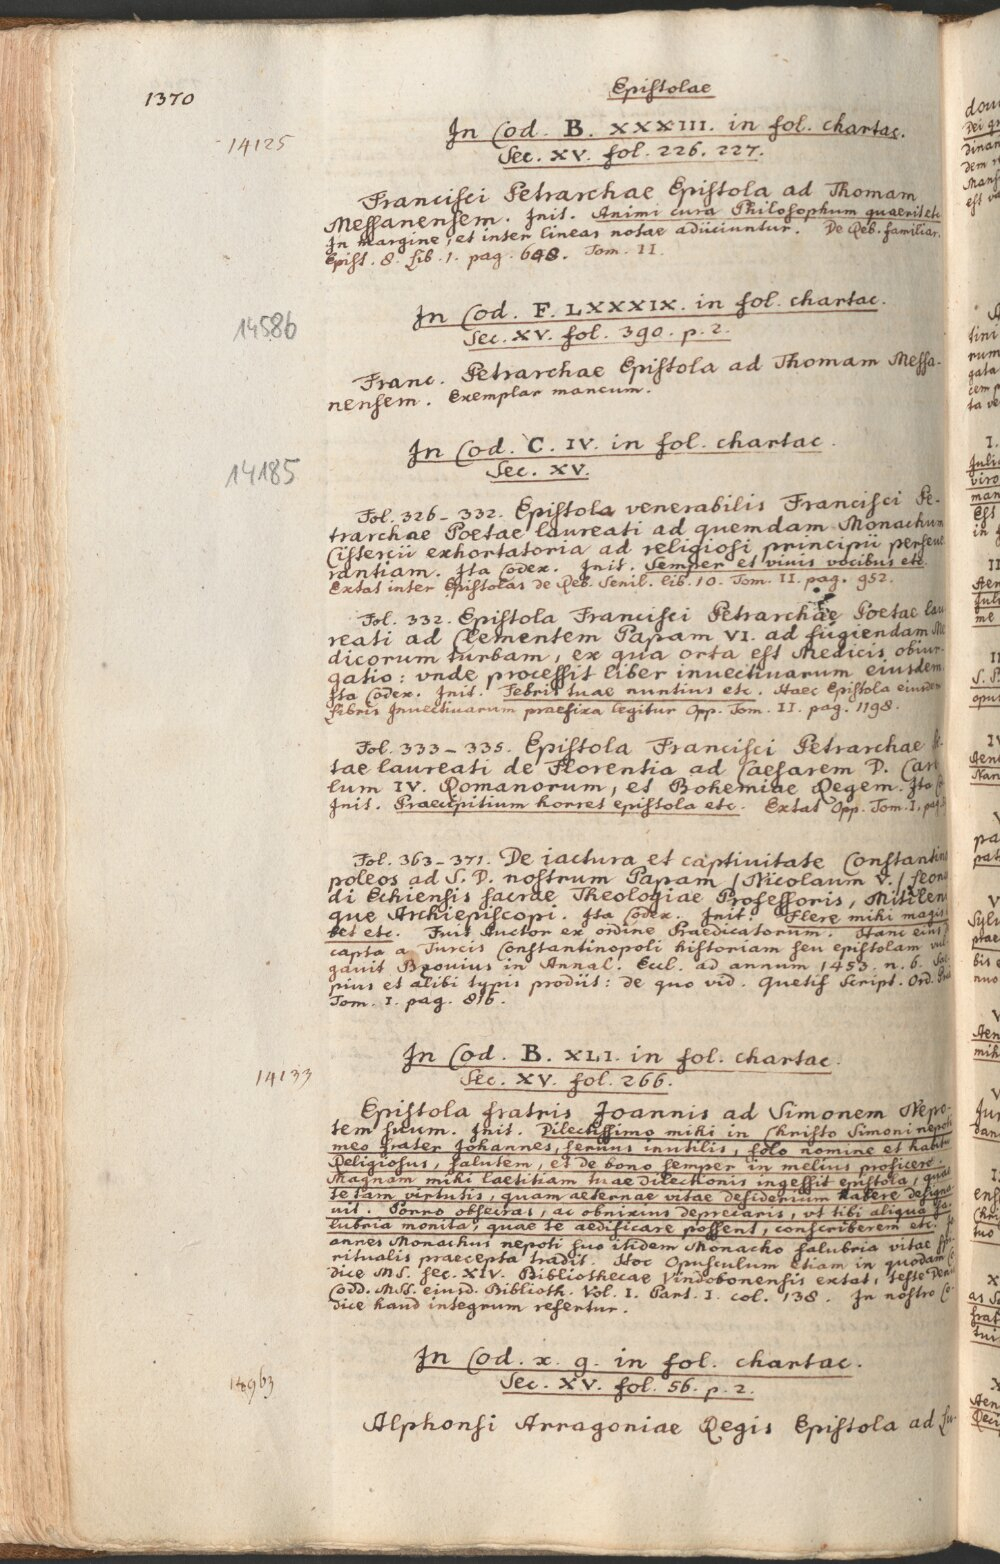 1370
Epistolae
14125
In Cod. B. XXXIII. in fol. chartac.
Sec. XV. fol. 226. 227.
Francisci Petrarchae Epistola ad Thomam
Messanensem. Init. Animi cura Philosophum quaerit etc
In margine, et inter lineas notae adiiciuntur. De Reb. familiar.
Epist. 8. Lib. 1. pag. 648. Tom. II.
14586
In Cod. F. LXXXIX. in fol. chartac.
Sec. XV. fol. 390. p. 2.
Franc. Petrarchae Epistola ad Thomam Messa-
nensem. Exemplar mancum.
14185
In Cod. C. IV. in fol. chartac.
Sec. XV.
Fol. 326-332. Epistola venerabilis Francisci Pe-
trarchae Poetae laureati ad quemdam Monachum
Cistercii exhortatoria ad religiosi principii perseue
rantiam. Ita Codex. Init. Semper et viuis vocibus etc.
Extat inter Epistolas de Reb. Senil. lib. 10. Tom. II. pag. 952.
Fol. 332. Epistola Francisci Petrarchae Poetae lau
reati ad Clementem Papam VI. ad fugiendam Me
dicorum turbam, ex qua orta est Medicis obiur-
gatio: vnde processit liber inuectiuarum eiusdem.
Ita Codex. Init. Febris tuae nuntius etc. Haec Epistola eiusdem
libris Inuectiuarum praefixa legitur Opp. Tom. II. pag. 1198.
Fol. 333-335. Epistola Francisci Petrarchae
tae laureati de Florentia ad Caesarem D. Car
lum IV. Romanorum, et Bohemiae Regem. Ita
Init. Praecipitium horret epistola etc. Extat Opp. Tom. I. pag.
Fol. 363-371. De iactura et captiuitate Constantino
poleos ad S. D. nostrum Papam /Nicolaum V./ Leonar
di Echiensis sacrae Theologiae Professoris, Mitilen
que Archiepiscopi. Ita Codex. Init. Flere mihi magis
bet etc. Fuit Auctor ex ordine Praedicatorum. Hanc eius
capta a Turcis Constantinopoli historiam seu epistolam vul
gauit Bzouius in Annal. Eccl. ad annum 1453. n. 6. Sae
pius et alibi typis prodiit: de quo vid. Quetif Script. Ord.
Tom. I. pag. 816.
14133
In Cod. B. XLI. in fol. chartac.
Sec. XV. fol. 266.
Epistola fratris Joannis ad Simonem Nepo-
tem suum. Init. Dilectissimo mihi in Christo Simoni nepoti
meo frater Johannes, seruus inutilis, solo nomine et habitu
Religiosus, salutem, et de bono semper in melius proficere.
Magnam mihi laetitiam tuae dilectionis ingessit epistola, quae
te tam virtutis, quam aeternae vitae desiderium habere designa
uit. Porro obsecras, ac obnixius deprecaris, vt tibi aliqua sa-
lubria monita, quae te aedificare possent, conscriberem etc.
annes Monachus nepoti suo itidem Monacho salubria vitae spi-
ritualis praecepta tradit. Hoc Opusculum etiam in quodam Co
dice MS. sec. XIV. Bibliothecae Vindobonensis extat, teste Denis
Codd. MSS. eiusd. Biblioth. Vol. I. Part. I. col. 138. In nostro Co-
dice haud integrum refertur.
14963
In Cod. x. 9. in fol. chartac.
Sec. XV. fol. 56. p. 2.
Alphonsi Arragoniae Regis Epistola ad Lu-